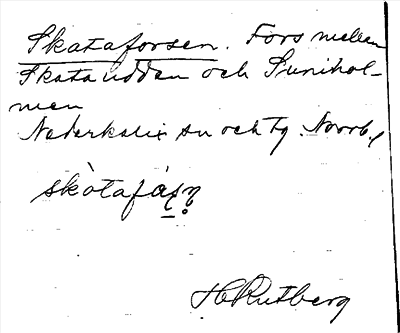 Skataforsen. Fors mellan
Skataudden och Sunihol-
men
Nederkalix sn och tg. Norrb. l
skòtafáṣṇ
H Rutberg